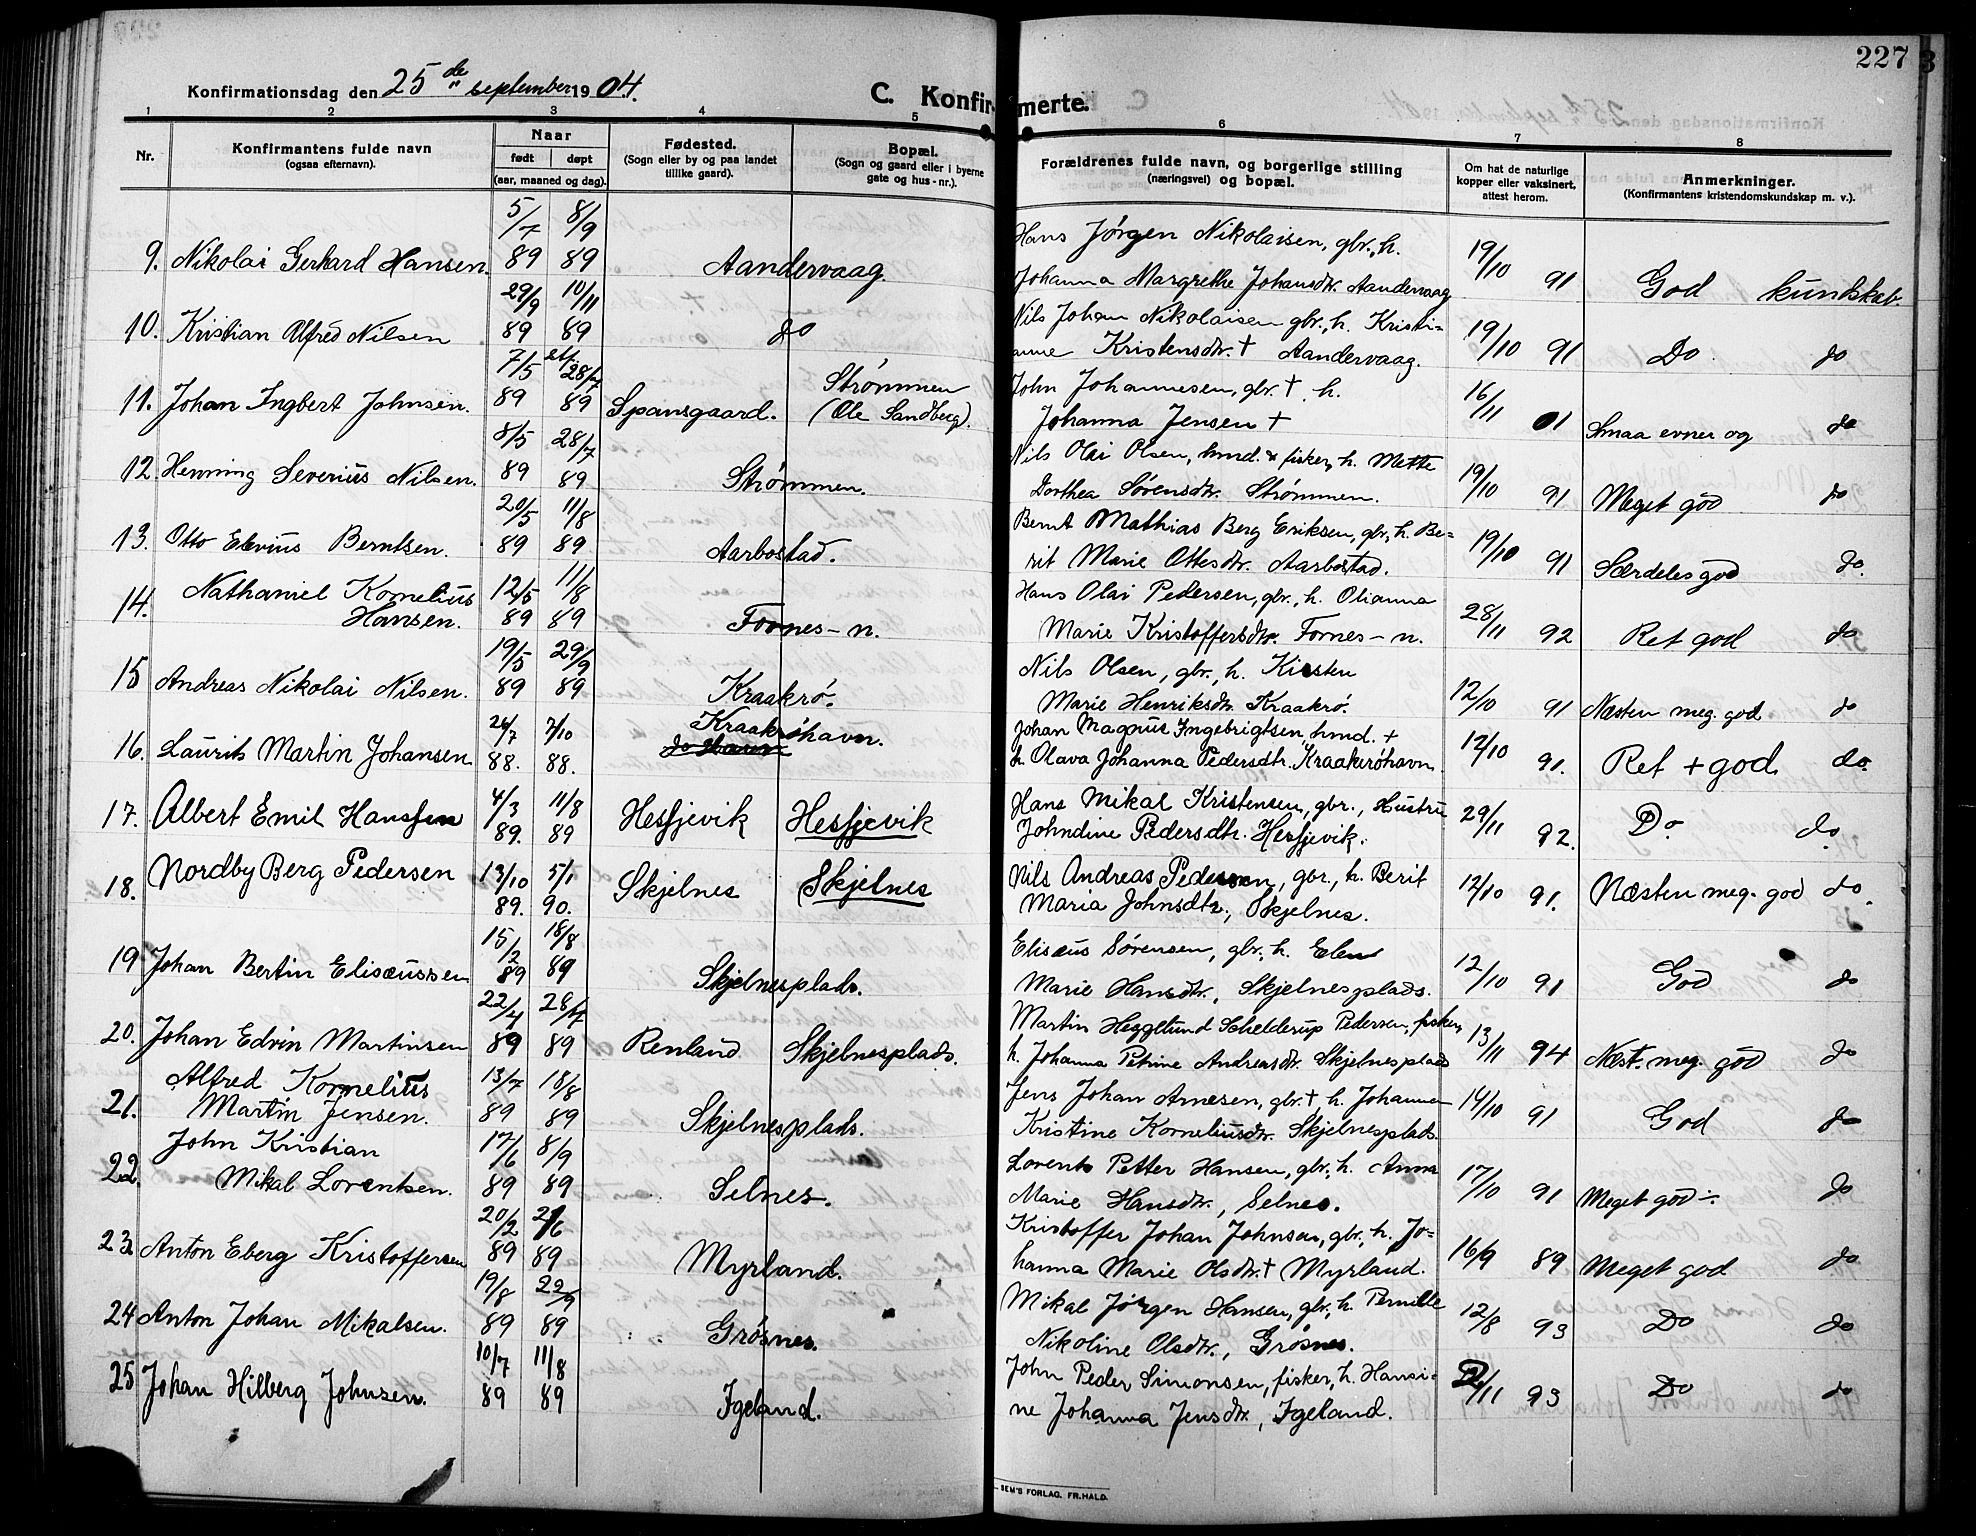 227
Konfirmationsdag den 25 de september 1904.
C. Konfirmerte.
1 2 3 4 5 6 7 8
Nr.
Konfirmantens fulde navn
(ogsaa efternavn).
Naar
født døpt
(aar, maaned og dag).
Fødested.
(Sogn eller by og paa landet
tillike gaard).
Bopæl.
(Sogn og gaard eller i byerne
gate og hus-nr.).
Forældrenes fulde navn, og borgerlige stilling
(næringsvei) og bopæl.
Om hat de naturlige
kopper eller vaksinert,
attest herom.
Anmerkninger.
(Konfirmantens kristendomskundskap m. v.).
5/7 8/9 Hans Jørgen Nikolaisen, gbr., h.
9. Nikolai Gerhard Hansen. 89 89 Aandervaag. Johanna Margrethe Johansdtr. Aandervaag 19/10 91 God kundskab
29/9 10/11 Nils Johan Nikolaisen gbr., h. Kristi=
10. Kristian Alfred Nilsen 89 89 do anne Kristensdtr. † Aandervaag. 19/10 91 Do. do
7/5 28/7 Strømmen John Johannesen, gbr. † h.
11. Johan Ingbert Johnsen. 89 89 Spansgaard. (Ole Sandberg). Johanna Jensen † 16/11 01 Smaa evner og do
8/5 28/7 Nils Olai Olsen, hmd. & fisker, h. Mette
12. Henning Severius Nilsen. 89 89 Strømmen. Dorthea Sørensdtr. Strømmen. 19/10 91 Meget god do
20/5 11/8 Bernt Mathias Berg Eriksen, gbr., h. Be=
13. Otto Elevius Berntsen. 89 89 Aarbostad. rit Marie Ottesdtr. Aarbostad. 19/10 91 Særdeles god do.
Nathaniel Kornelius 12/5 11/8 Hans Olai Pedersen, gbr., h. Olianna
14. Hansen. 89 89 Fornes-n. Marie Kristoffersdtr. Fornes-n. 28/11 92 Ret god do
19/5 29/9 Nils Olsen, gbr., h. Kirsten
15 Andreas Nikolai Nilsen. 89 89 Kraakrø. Marie Henriksdtr. Kraakrø. 12/10 91 Næsten meg. god do
26/7 7/10 Kraakrøhavn. Johan Magnus Ingebrigtsen, hmd. +
16. Laurits Martin Johansen 88. 88. h. Olava Johanna Pedersdtr. Kraakerøhavn. 12/10 91. Ret + god do.
4/3 11/8 Hans Mikal Kristensen, gbr., Hustru
17. Albert Emil Hanssen 89. 89 Hesfjevik Hesfjevik Johndine Pedersdtr. Hesfjevik. 29/11 92. Do. do.
Nordby Berg Pedersen 13/10 5/1 Nils Andreas Pedersen, gbr., h. Berit
18. 89. 90. Skjelnes Skjelnes Maria Johnsdtr., Skjelnes. 12/10 91. Næsten meg. god do.
15/2 18/8 Elisæus Sørensen, gbr., h. Elen
19 Johan Bertin Elisæussen 89 89 Skjelnesplads. Marie Hansdtr., Skjelnesplads. 12/10 91 God do
22/4 28/7 Martin Heggelund Schelderup Pedersen, fisker,
20. Johan Edvin Martinsen 89 89 Renland Skjelnesplads. h. Johanna Petrine Andreasdtr. Skjelnesplads 13/11 94 Næst. meg. god do
Alfred Kornelius 13/7 18/8 Jens Johan Arnesen, gbr. † h. Johanna
21. Martin Jensen. 89 89 Skjelnesplads. Kristine Korneliusdtr. Skjelnesplads. 14/10 91 God do
John Kristian 17/6 8/9 Lorents Petter Hansen, gbr., h. Anna
22. Mikal Lorentsen. 89 89 Selnes. Marie Hansdtr., Selnes. 17/10 91 Meget god ÷ do
20/2 2/6 Kristoffer Johan Johnsen, gbr., h. Jo=
23. Anton Eberg Kristoffersen 89 89 Myrland. hanna Marie Olsdtr. † Myrland. 16/9 89 Meget god do
19/8 22/9 Mikal Jørgen Hansen, gbr., h. Pernille
24 Anton Johan Mikalsen. 89 89 Grøsnes. Nikoline Olsdtr., Grøsnes. 12/8 93 Do do
10/7 11/8 John Peder Simonsen, fisker, h. Hansi=
25 Johan Hilberg Johnsen. 89 89 Igeland. ne Johanna Jensdtr., Igeland. /11 93 Do do
SEM'S FORLAG. FR.HALD.